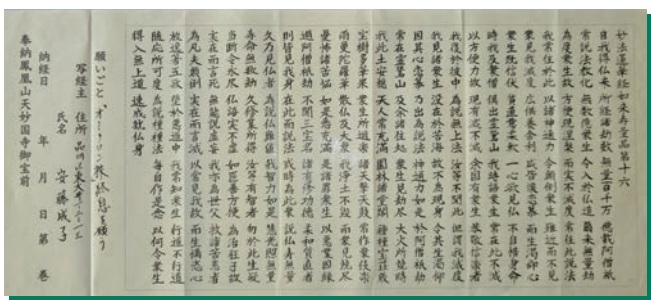 妙法蓮華経如来寿量品第十六
自我得仏来 所経諸劫数 無量百千万 億載阿僧祇
常説法教化 無数億衆生 令入於仏道 爾来無量劫
為度衆生故 方便現涅槃 而実不滅度 常住此説法
我常住於此 以諸神通力 令顛倒衆生 雖近而不見
衆見我滅度 広供養舎利 咸皆懐恋慕 而生渇仰心
衆生既信伏 質直意柔軟 一心欲見仏 不自惜身命
時我及衆僧 倶出霊鷲山 我時語衆生 常在此不滅
以方便力故 現有滅不滅 余国有衆生 恭敬信楽者
我復於彼中 為説無上法 汝等不聞此 但謂我滅度
我見諸衆生 没在於苦海 故不為現身 令其生渇仰
因其心恋慕 乃出為説法 神通力如是 於阿僧祇劫
常在霊鷲山 及余諸住処 衆生見劫尽 大火所焼時
我此土安穏 天人常充満 園林諸堂閣 種種宝荘厳
宝樹多華果 衆生所遊楽 諸天撃天鼓 常作衆伎楽
雨曼陀羅華 散仏及大衆 我浄土不毀 而衆見焼尽
憂怖諸苦悩 如是悉充満 是諸罪衆生 以悪業因縁
過阿僧祇劫 不聞三宝名 諸有修功徳 柔和質直者
則皆見我身 在此而説法 或時為此衆 説仏寿無量
久乃見仏者 為説仏難値 我智力如是 慧光照無量
寿命無数劫 久修業所得 汝等有智者 勿於此生疑
当断令永尽 仏語実不虚 如医善方便 為治狂子故
実在而言死 無能説虚妄 我亦為世父 救諸苦患者
為凡夫顛倒 実在而言滅 以常見我故 而生憍恣心
放逸著五欲 堕於悪道中 我常知衆生 行道不行道
随応所可度 為説種種法 毎自作是念 以何令衆生
得入無上道 速成就仏身
願いごと オミクロン株終息を願う
写経主 住所 品川区東大井
氏名 安藤成子
納経日 年 月 日 第 巻
奉納鳳凰山天妙国寺御宝前